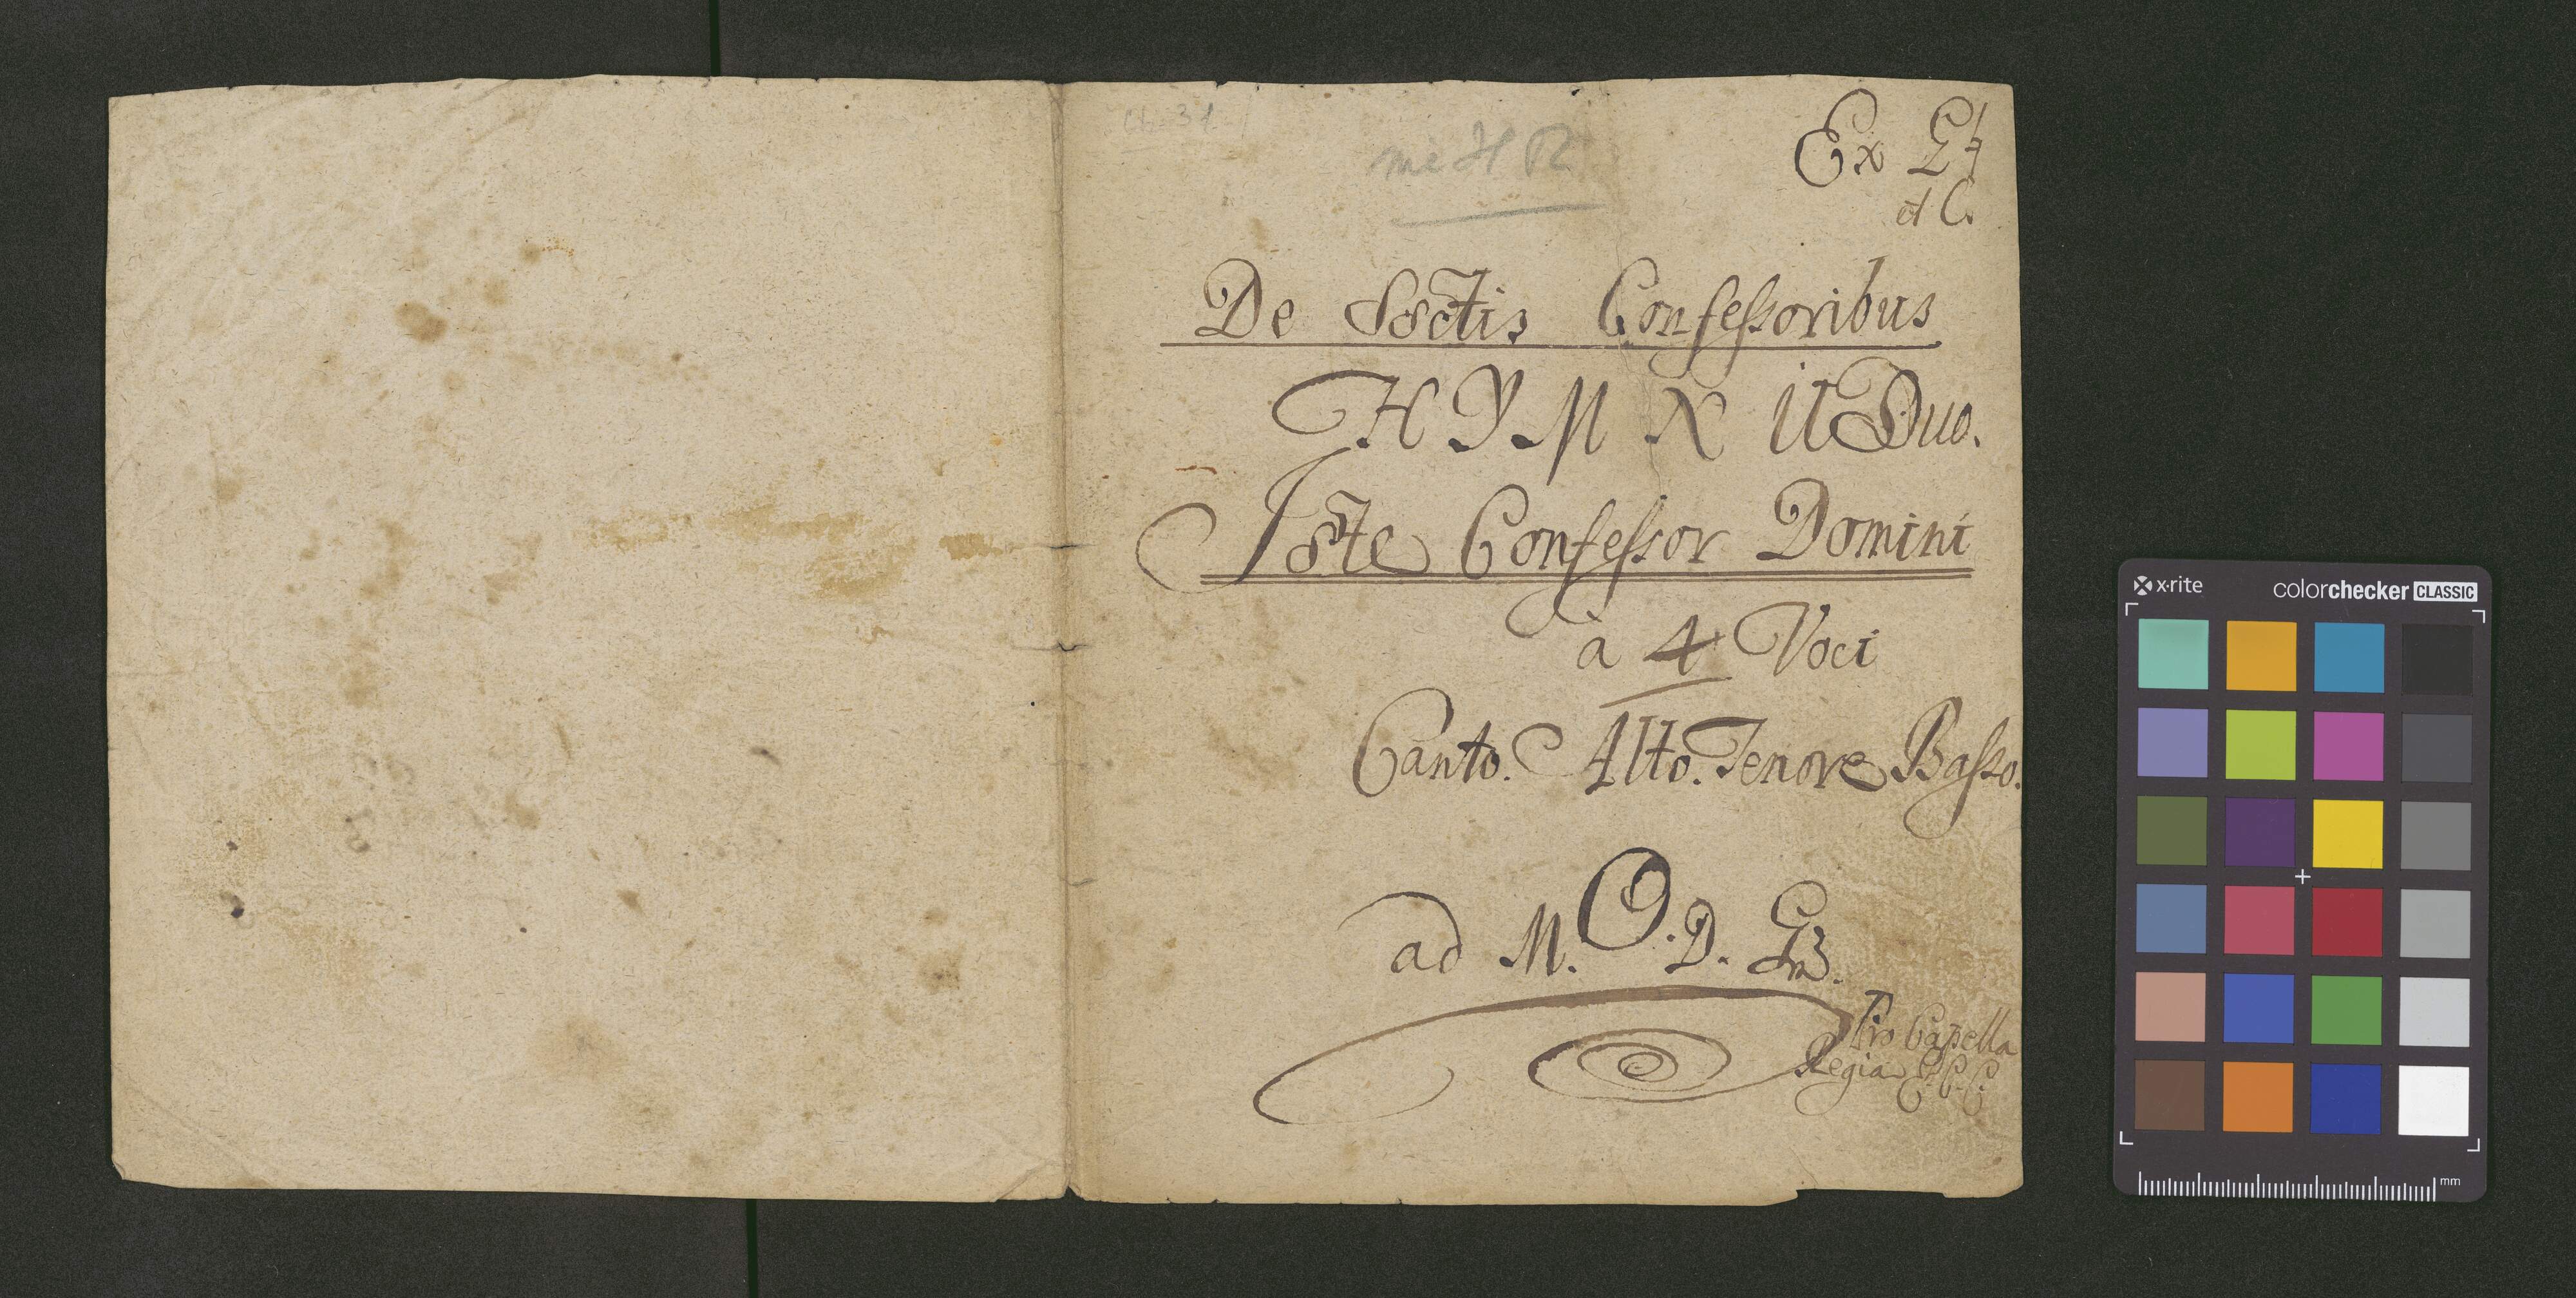 Ex G♮
et C.
De Sctis Confessoribus
HYMNUS Duo.
Iste Confessor Domini
à 4 Voci
Canto. Alto. Tenore Basso.
ad M. O. D. G.
Pro Capella
Regia
x·rite
colorchecker CLASSIC
mm